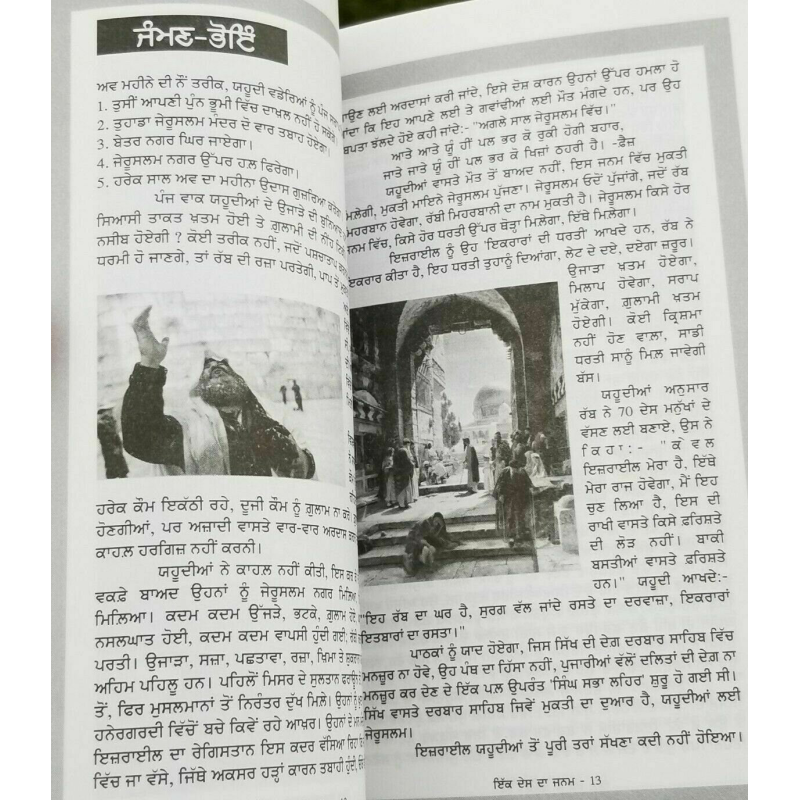 ਜੰਮਣ-ਭੋਇੰ
ਅਵ ਮਹੀਨੇ ਦੀ ਨੌਂ ਤਰੀਕ, ਯਹੂਦੀ ਵਡੇਰਿਆਂ ਨੂੰ ਪੰਜ
1. ਤੁਸੀਂ ਆਪਣੀ ਪੁੰਨ ਭੂਮੀ ਵਿੱਚ ਦਾਖਲ ਨਹੀਂ ਹੋ ਸਕੋਗੇ।
2. ਤੁਹਾਡਾ ਜੇਰੂਸਲਮ ਮੰਦਰ ਦੋ ਵਾਰ ਤਬਾਹ ਹੋਏਗਾ।
3. ਬੇਤਰ ਨਗਰ ਘਿਰ ਜਾਏਗਾ।
4. ਜੇਰੂਸਲਮ ਨਗਰ ਉੱਪਰ ਹਲ਼ ਫਿਰੇਗਾ।
5. ਹਰੇਕ ਸਾਲ ਅਵ ਦਾ ਮਹੀਨਾ ਉਦਾਸ ਗੁਜ਼ਰਿਆ ਕਰੇਗਾ
ਪੰਜ ਵਾਕ ਯਹੂਦੀਆਂ ਦੇ ਉਜਾੜੇ ਦੀ ਬੁਨਿਆਦ
ਸਿਆਸੀ ਤਾਕਤ ਖ਼ਤਮ ਹੋਈ ਤੇ ਗ਼ੁਲਾਮੀ ਦੀ ਨੀਂਹ
ਨਸੀਬ ਹੋਏਗੀ ? ਕੋਈ ਤਰੀਕ ਨਹੀਂ, ਜਦੋਂ ਪਸਚਾਤਾਪ
ਧਰਮੀ ਹੋ ਜਾਣਗੇ, ਤਾਂ ਰੱਬ ਦੀ ਰਜ਼ਾ ਪਰਤੇਗੀ, ਪਾਪ ਤੋਂ
ਹਰੇਕ ਕੌਮ ਇਕੱਠੀ ਰਹੇ, ਦੂਜੀ ਕੌਮ ਨੂੰ ਗ਼ੁਲਾਮ ਨਾ ਕਰੇ।
ਹੋਣਗੀਆਂ, ਪਰ ਅਜ਼ਾਦੀ ਵਾਸਤੇ ਵਾਰ-ਵਾਰ ਅਰਦਾਸ
ਕਾਹਲ ਹਰਗਿਜ਼ ਨਹੀਂ ਕਰਨੀ।
ਯਹੂਦੀਆਂ ਨੇ ਕਾਹਲ ਨਹੀਂ ਕੀਤੀ, ਇਸ ਕਰ ਕੇ
ਵਕਫ਼ੇ ਬਾਅਦ ਉਹਨਾਂ ਨੂੰ ਜੇਰੂਸਲਮ ਨਗਰ ਮਿਲਿਆ,
ਮਿਲਿਆ। ਕਦਮ ਕਦਮ ਉੱਜੜੇ, ਭਟਕੇ, ਗ਼ੁਲਾਮ ਹੋਏ,
ਨਸਲਘਾਤ ਹੋਈ, ਕਦਮ ਕਦਮ ਵਾਪਸੀ ਹੁੰਦੀ ਗਈ;
ਪਰਤੀ। ਉਜਾੜਾ, ਸਜ਼ਾ, ਪਛਤਾਵਾ, ਰਜ਼ਾ, ਖਿਮਾ ਤੇ ਸ਼ੁਕਰਾਨਾ
ਅਹਿਮ ਪਹਿਲੂ ਹਨ। ਪਹਿਲੋਂ ਮਿਸਰ ਦੇ ਸੁਲਤਾਨ
ਤੋਂ, ਫਿਰ ਮੁਸਲਮਾਨਾਂ ਤੋਂ ਨਿਰੰਤਰ ਦੁੱਖ ਮਿਲੇ। ਉਹਨਾਂ ਨੂੰ
ਹਨੇਰਗਰਦੀ ਵਿੱਚੋਂ ਬਚੇ ਕਿਵੇਂ ਰਹੇ ਆਖ਼ਰ। ਉਹਨਾਂ ਦੇ
ਇਜ਼ਰਾਈਲ ਦਾ ਰੇਗਿਸਤਾਨ ਇਸ ਕਦਰ ਵੱਸਿਆ ਰਿਹਾ
ਵਿੱਚ ਜਾ ਵੱਸੇ, ਜਿੱਥੇ ਅਕਸਰ ਹੜ੍ਹਾਂ ਕਾਰਨ ਤਬਾਹੀ ਹੁੰਦੀ,
ਲਈ ਅਰਦਾਸਾਂ ਕਰੀ ਜਾਂਦੇ, ਇਸੇ ਦੋਸ਼ ਕਾਰਨ ਉਹਨਾਂ ਉੱਪਰ ਹਮਲਾ ਹੋ
ਕਿ ਇਹ ਆਪਣੇ ਲਈ ਤੇ ਗਵਾਂਢੀਆਂ ਲਈ ਮੌਤ ਮੰਗਦੇ ਹਨ, ਪਰ ਉਹ
ਬਪਤਾ ਝੱਲਦੇ ਹੋਏ ਕਹੀ ਜਾਂਦੇ:- "ਅਗਲੇ ਸਾਲ ਜੇਰੂਸਲਮ ਵਿੱਚ।"
ਆਤੇ ਆਤੇ ਯੂੰ ਹੀਂ ਪਲ ਭਰ ਕੋ ਰੁਕੀ ਹੋਗੀ ਬਹਾਰ,
ਜਾਤੇ ਜਾਤੇ ਯੂੰ ਹੀਂ ਪਲ ਭਰ ਕੋ ਖਿਜ਼ਾਂ ਠਹਰੀ ਹੈ। -ਫ਼ੈਜ਼
ਯਹੂਦੀਆਂ ਵਾਸਤੇ ਮੌਤ ਤੋਂ ਬਾਅਦ ਨਹੀਂ, ਇਸ ਜਨਮ ਵਿੱਚ ਮੁਕਤੀ
ਮਲੇਗੀ, ਮੁਕਤੀ ਮਾਇਨੇ ਜੇਰੂਸਲਮ ਪੁੱਜਣਾ। ਜੇਰੂਸਲਮ ਓਦੋਂ ਪੁੱਜਾਂਗੇ, ਜਦੋਂ ਰੱਬ
ਮਿਹਰਬਾਨ ਹੋਵੇਗਾ, ਰੱਬੀ ਮਿਹਰਬਾਨੀ ਦਾ ਨਾਮ ਮੁਕਤੀ ਹੈ। ਜੇਰੂਸਲਮ ਕਿਸੇ ਹੋਰ
ਜਨਮ ਵਿੱਚ, ਕਿਸੇ ਹੋਰ ਧਰਤੀ ਉੱਪਰ ਥੋੜ੍ਹਾ ਮਿਲੇਗਾ, ਇੱਥੇ ਮਿਲੇਗਾ।
ਇਜ਼ਰਾਈਲ ਨੂੰ ਉਹ 'ਇਕਰਾਰਾਂ ਦੀ ਧਰਤੀ' ਆਖਦੇ ਹਨ, ਰੱਬ ਨੇ
ਇਕਰਾਰ ਕੀਤਾ ਹੈ, ਇਹ ਧਰਤੀ ਤੁਹਾਨੂੰ ਦਿਆਂਗਾ, ਲੇਟ ਦੇ ਦਏ, ਦਏਗਾ ਜ਼ਰੂਰ।
ਉਜਾੜਾ ਖ਼ਤਮ ਹੋਏਗਾ,
ਮਿਲਾਪ ਹੋਵੇਗਾ, ਸਰਾਪ
ਮੁੱਕੇਗਾ, ਗ਼ੁਲਾਮੀ ਖ਼ਤਮ
ਹੋਏਗੀ। ਕੋਈ ਕ੍ਰਿਸ਼ਮਾ
ਨਹੀਂ ਹੋਣ ਵਾਲਾ, ਸਾਡੀ
ਧਰਤੀ ਸਾਨੂੰ ਮਿਲ ਜਾਵੇਗੀ
ਬੱਸ।
ਯਹੂਦੀਆਂ ਅਨੁਸਾਰ
ਰੱਬ ਨੇ 70 ਦੇਸ ਮਨੁੱਖਾਂ ਦੇ
ਵੱਸਣ ਲਈ ਬਣਾਏ, ਉਸ ਨੇ
ਕਿਹਾ:- "ਕੇਵਲ
ਇਜ਼ਰਾਈਲ ਮੇਰਾ ਹੈ, ਇੱਥੇ
ਮੇਰਾ ਰਾਜ ਹੋਵੇਗਾ, ਮੈਂ ਇਹ
ਚੁਣ ਲਿਆ ਹੈ, ਇਸ ਦੀ
ਰਾਖੀ ਵਾਸਤੇ ਕਿਸੇ ਫ਼ਰਿਸ਼ਤੇ
ਦੀ ਲੋੜ ਨਹੀਂ। ਬਾਕੀ
ਬਸਤੀਆਂ ਵਾਸਤੇ ਫ਼ਰਿਸ਼ਤੇ
ਹਨ।" ਯਹੂਦੀ ਆਖਦੇ:-
"ਇਹ ਰੱਬ ਦਾ ਘਰ ਹੈ, ਸੁਰਗ ਵੱਲ ਜਾਂਦੇ ਰਸਤੇ ਦਾ ਦਰਵਾਜ਼ਾ, ਇਕਰਾਰਾਂ
ਇਤਬਾਰਾਂ ਦਾ ਰਸਤਾ।"
ਪਾਠਕਾਂ ਨੂੰ ਯਾਦ ਹੋਏਗਾ, ਜਿਸ ਸਿੱਖ ਦੀ ਦੇਗ਼ ਦਰਬਾਰ ਸਾਹਿਬ ਵਿੱਚ
ਮਨਜ਼ੂਰ ਨਾ ਹੋਵੇ, ਉਹ ਪੰਥ ਦਾ ਹਿੱਸਾ ਨਹੀਂ, ਪੁਜਾਰੀਆਂ ਵੱਲੋਂ ਦਲਿਤਾਂ ਦੀ ਦੇਗ਼ ਨਾ
ਮਨਜ਼ੂਰ ਕਰ ਦੇਣ ਦੇ ਇੱਕ ਪਲ ਉਪਰੰਤ 'ਸਿੰਘ ਸਭਾ ਲਹਿਰ' ਸ਼ੁਰੂ ਹੋ ਗਈ ਸੀ।
ਸਿੱਖ ਵਾਸਤੇ ਦਰਬਾਰ ਸਾਹਿਬ ਜਿਵੇਂ ਮੁਕਤੀ ਦਾ ਦੁਆਰ ਹੈ, ਯਹੂਦੀਆਂ ਲਈ
ਜੇਰੂਸਲਮ।
ਇਜ਼ਰਾਈਲ ਯਹੂਦੀਆਂ ਤੋਂ ਪੂਰੀ ਤਰਾਂ ਸੱਖਣਾ ਕਦੀ ਨਹੀਂ ਹੋਇਆ।
ਇੱਕ ਦੇਸ ਦਾ ਜਨਮ - 13